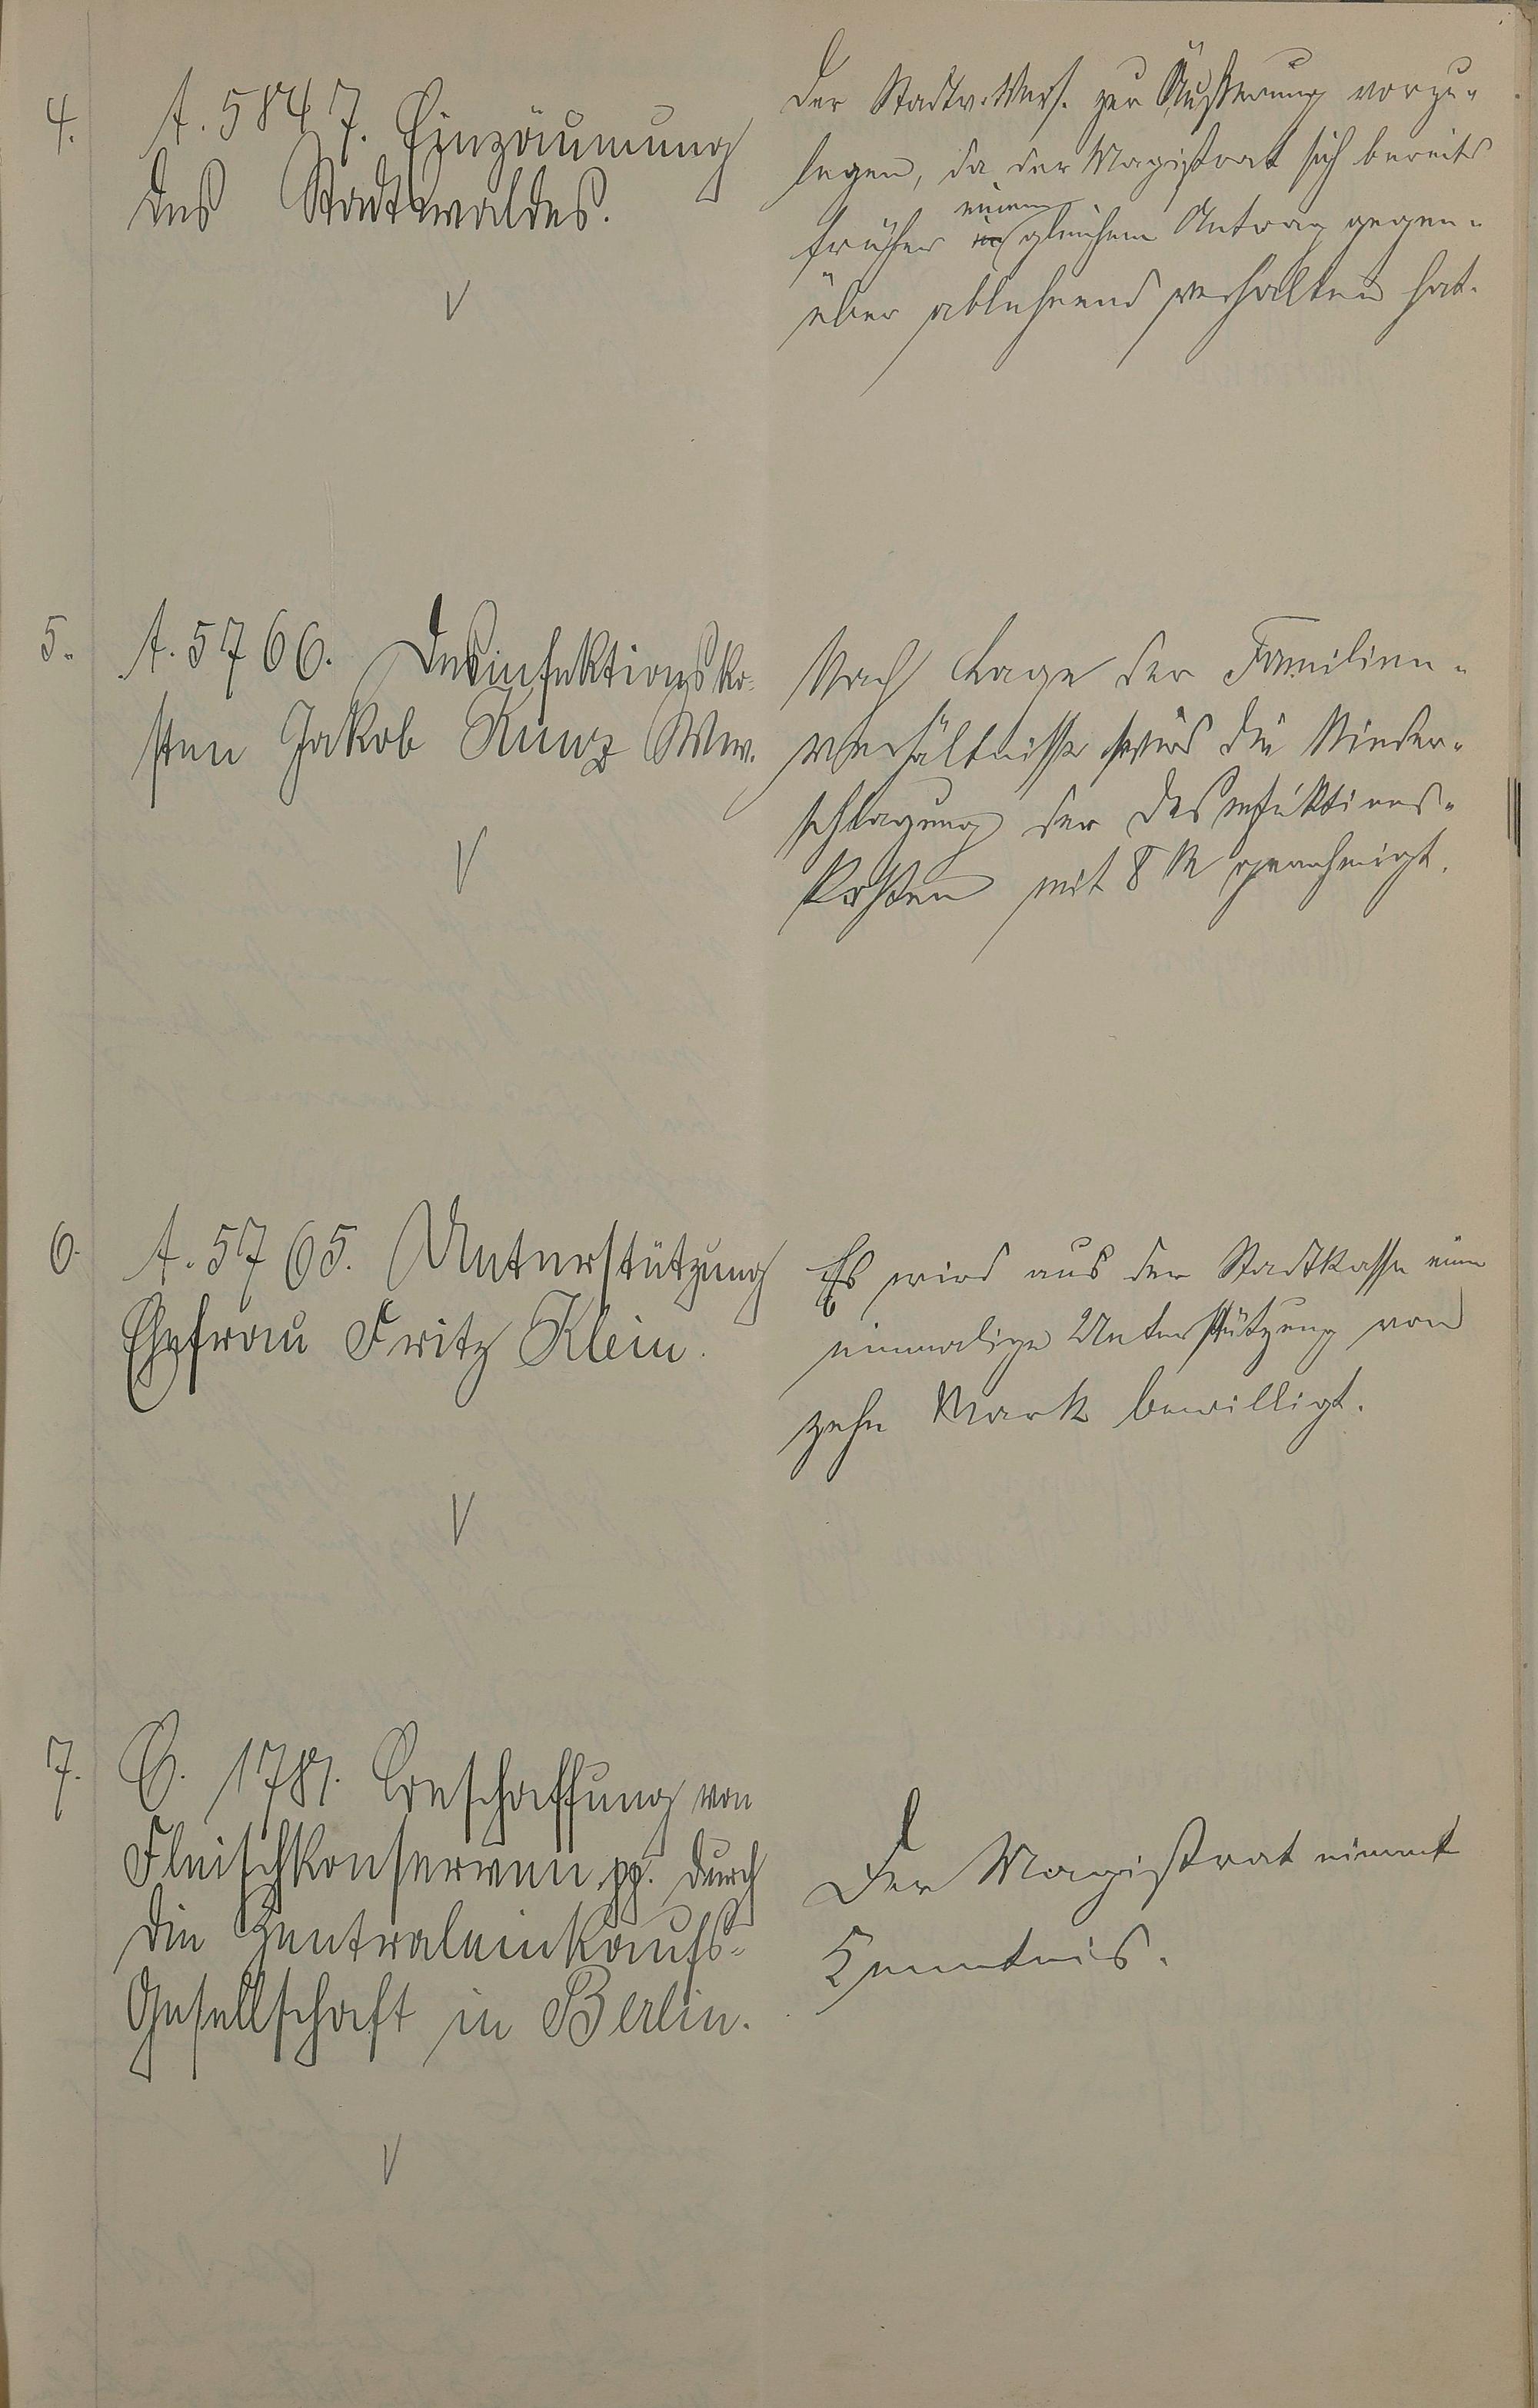 4.
A. 5847. Einzäunung
des Stadtwaldes.
Der Stadtv. Vers. zur Äußerung vorzu-
legen, da der Magistrat sich bereits
früher einem gleichem Antrag gegen-
über ablehnend verhalten hat.
5.
A. 5766. Desinfektionsko-
sten Jakob Kunz Ww.
Nach Lage der Familien-
verhältnisse wird die Nieder-
schlagung der Desinfektions-
kosten mit 8 M genehmigt.
6.
A. 5765. Unterstützung
Ehefrau Fritz Klein.
Es wird aus der Stadtkasse eine
einmalige Unterstützung von
zehn Mark bewilligt.
7.
C. 1781. Beschaffung von
Fleischkonserven pp. durch
die Zentraleinkaufs-
Gesellschaft in Berlin.
Der Magistrat nimmt
Kenntnis.